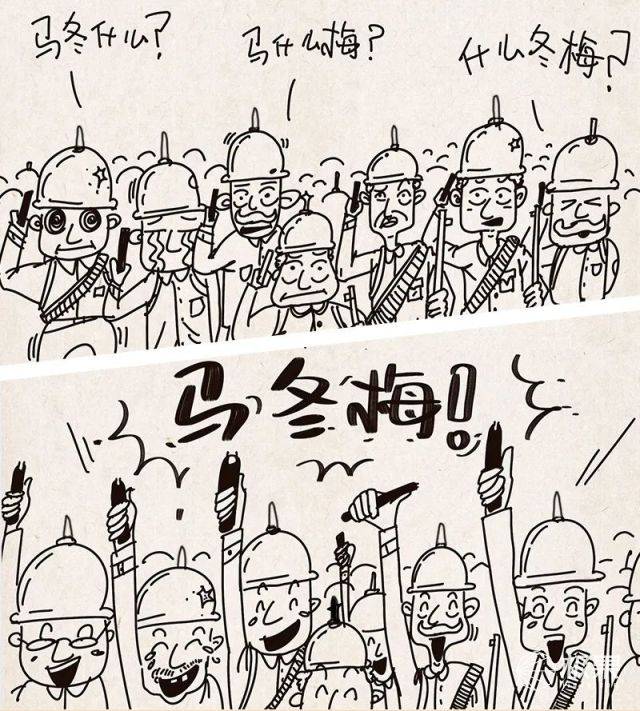 马冬什么?
马什么梅?
什么冬梅?
马冬梅!